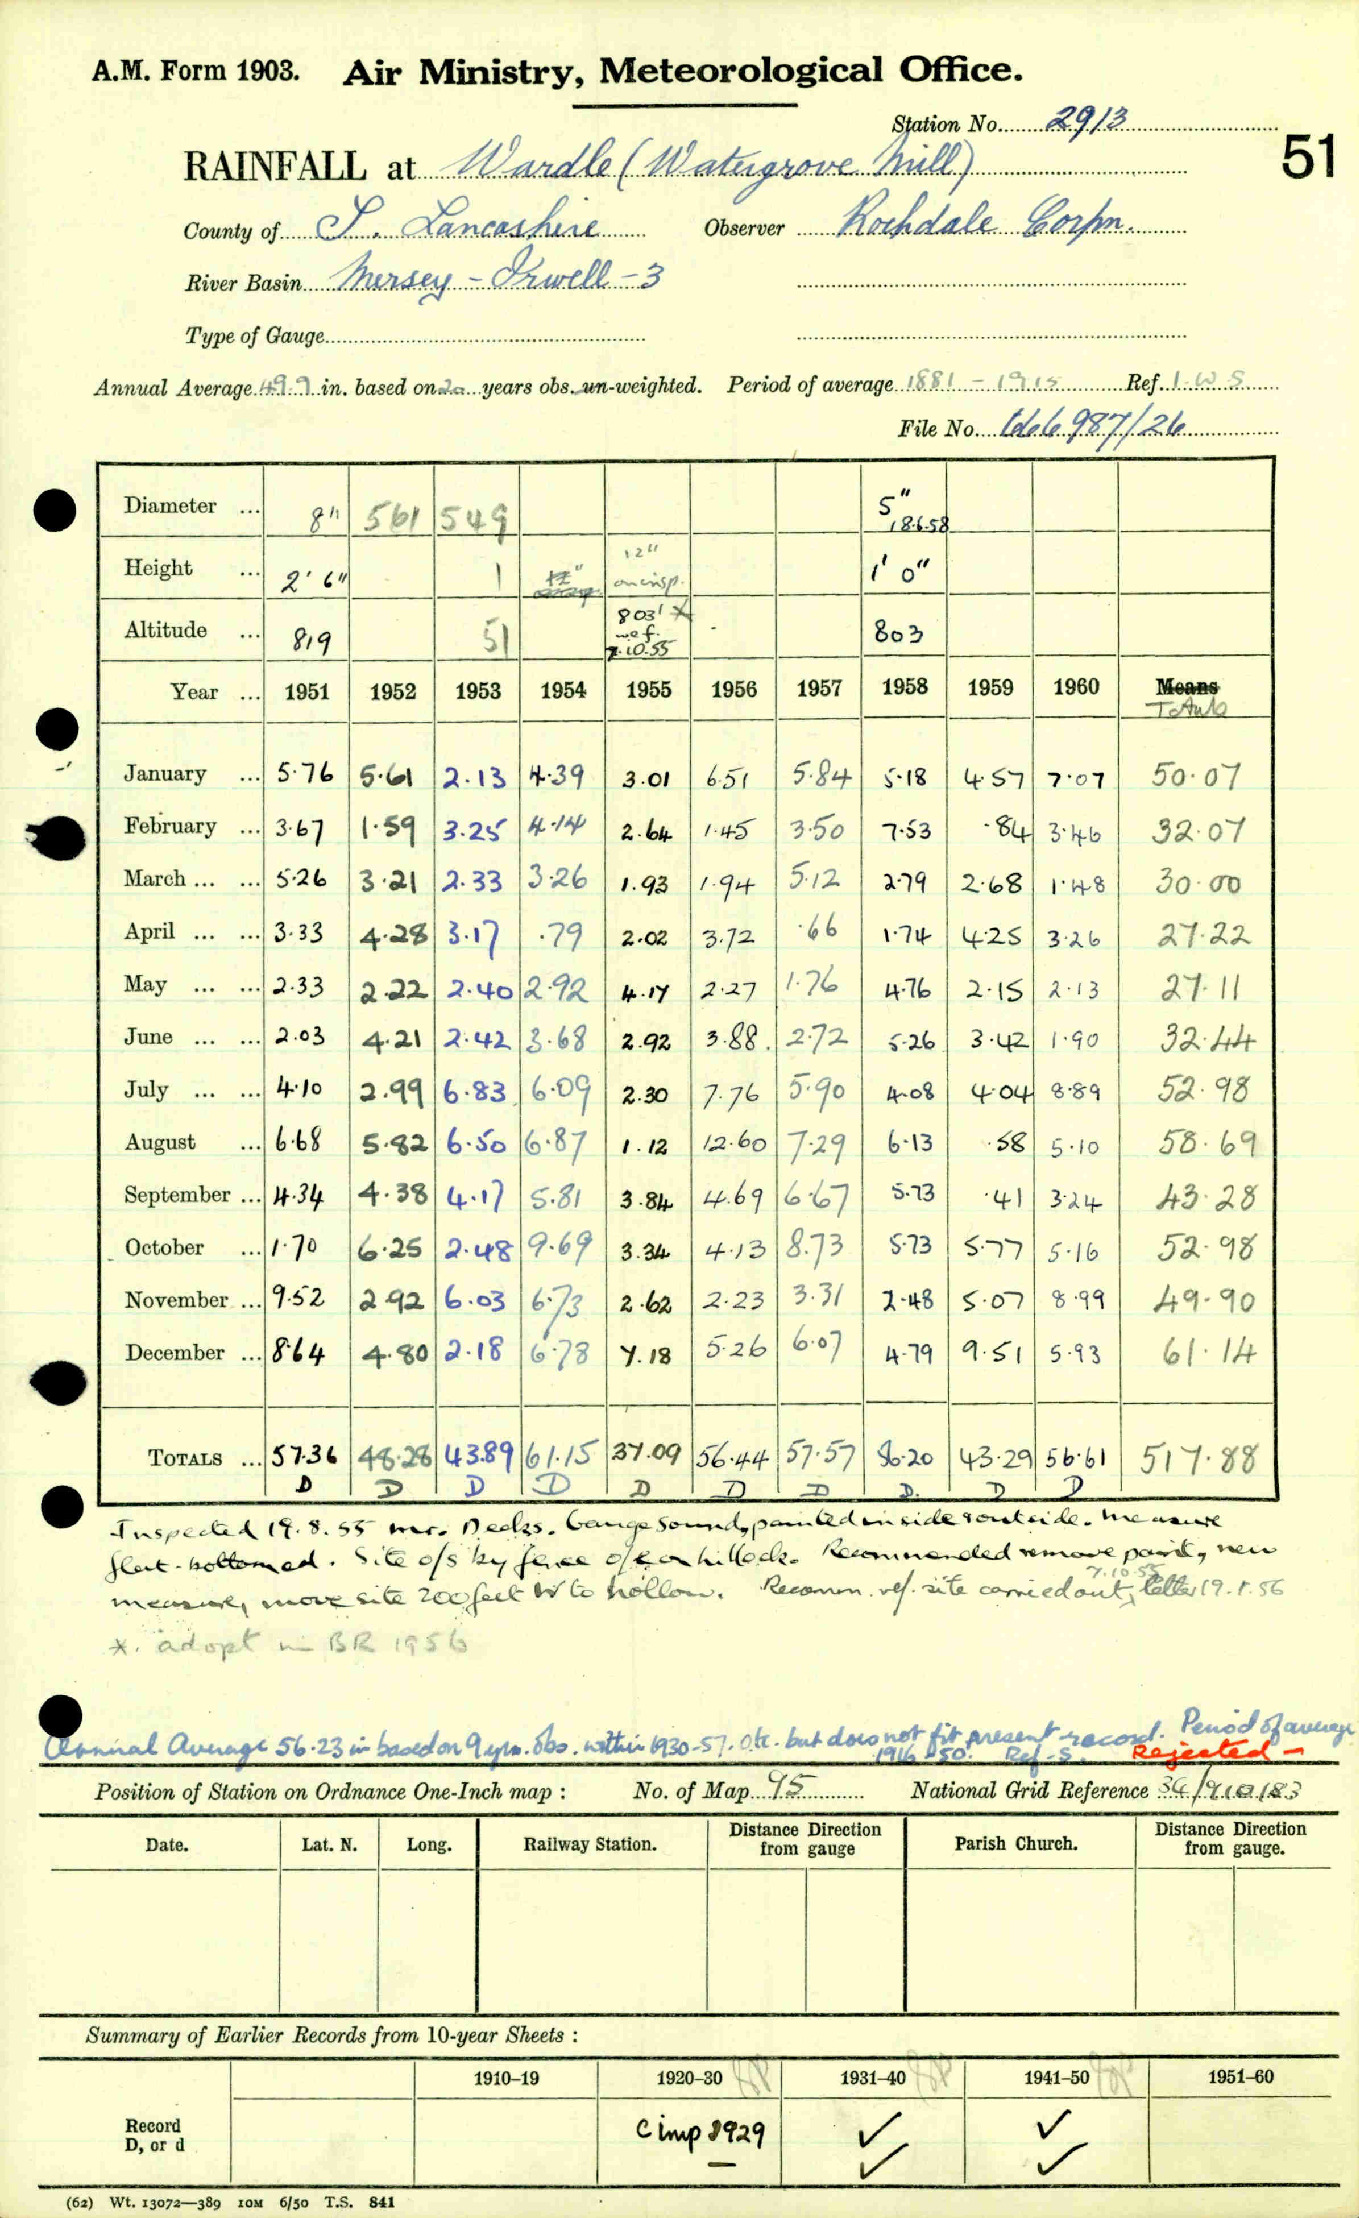 A.M. Form 1903. Air Ministry, Meteorological Office.
Station No. 2913
51
RAINFALL at Wardle (Watergrove Mill)
County of S. Lancashire Observer Rochdale Corpn.
River Basin Mersey - Irwell - 3
Type of Gauge
Annual Average 49.9 in. based on 20 years obs. un-weighted. Period of average 1881 - 1915 Ref. I.W.S
File No. 666987/26
Diameter ... 8" 561 549 5" 18.6.58
Height ... 2' 6" 1 12" on insp. 1' 0"
Altitude ... 819 51 803' * w.e.f. 7.10.55 803
Year ... 1951 1952 1953 1954 1955 1956 1957 1958 1959 1960 Means Totals
January ... 5.76 5.61 2.13 4.39 3.01 6.51 5.84 5.18 4.57 7.07 50.07
February ... 3.67 1.59 3.25 4.14 2.64 1.45 3.50 7.53 .84 3.46 32.07
March ... ... 5.26 3.21 2.33 3.26 1.93 1.94 5.12 2.79 2.68 1.48 30.00
April ... ... 3.33 4.28 3.17 .79 2.02 3.72 .66 1.74 4.25 3.26 27.22
May ... ... 2.33 2.22 2.40 2.92 4.17 2.27 1.76 4.76 2.15 2.13 27.11
June ... ... 2.03 4.21 2.42 3.68 2.92 3.88 2.72 5.26 3.42 1.90 32.44
July ... ... 4.10 2.99 6.83 6.09 2.30 7.76 5.90 4.08 4.04 8.89 52.98
August ... 6.68 5.82 6.50 6.87 1.12 12.60 7.29 6.13 .58 5.10 58.69
September ... 4.34 4.38 4.17 5.81 3.84 4.69 6.67 5.73 .41 3.24 43.28
October ... 1.70 6.25 2.48 9.69 3.34 4.13 8.73 5.73 5.77 5.16 52.98
November ... 9.52 2.92 6.03 6.73 2.62 2.23 3.31 2.48 5.07 8.99 49.90
December ... 8.64 4.80 2.18 6.78 7.18 5.26 6.07 4.79 9.51 5.93 61.14
TOTALS ... 57.36 48.28 43.89 61.15 37.09 56.44 57.57 56.20 43.29 56.61 517.88
D D D D D D D D. D D
Inspected 19.8.55 Mr. Deeks. Gauge sound, painted inside & outside. Measure
flat-bottomed. Site o/s by fence o/e on hillock. Recommended remove paint, new
measure, move site 200 feet W to hollow. Recomm. ref. site carried out 7.10.55, letter 19.1.56
*. adopt in BR 1956
Annual Average 56.23 in based on 9 yrs. obs. within 1930-57. O.K. but does not fit present record. Period of average
1916-50. Ref - S. Rejected -
Position of Station on Ordnance One-Inch map : No. of Map 95 National Grid Reference 34/910183
Date. Lat. N. Long. Railway Station. Distance Direction from gauge Parish Church. Distance Direction from gauge.
Summary of Earlier Records from 10-year Sheets :
1910–19 1920–30 1931–40 1941–50 1951–60
Record D, or d C imp 1929 ✓ ✓
✓ ✓
(62) Wt. 13072—389 10M 6/50 T.S. 841